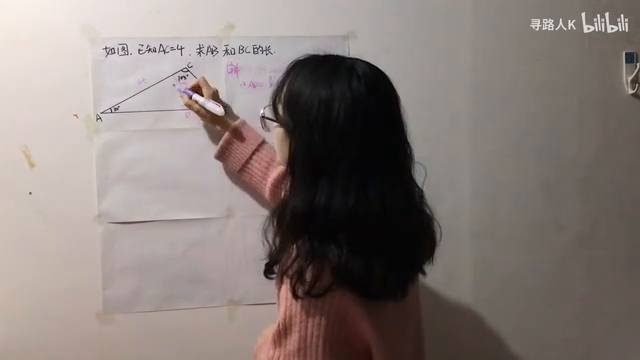 寻路人K bilibili
如图,已知AC=4,求AB和BC的长.
C
105°
4
A
30°
D